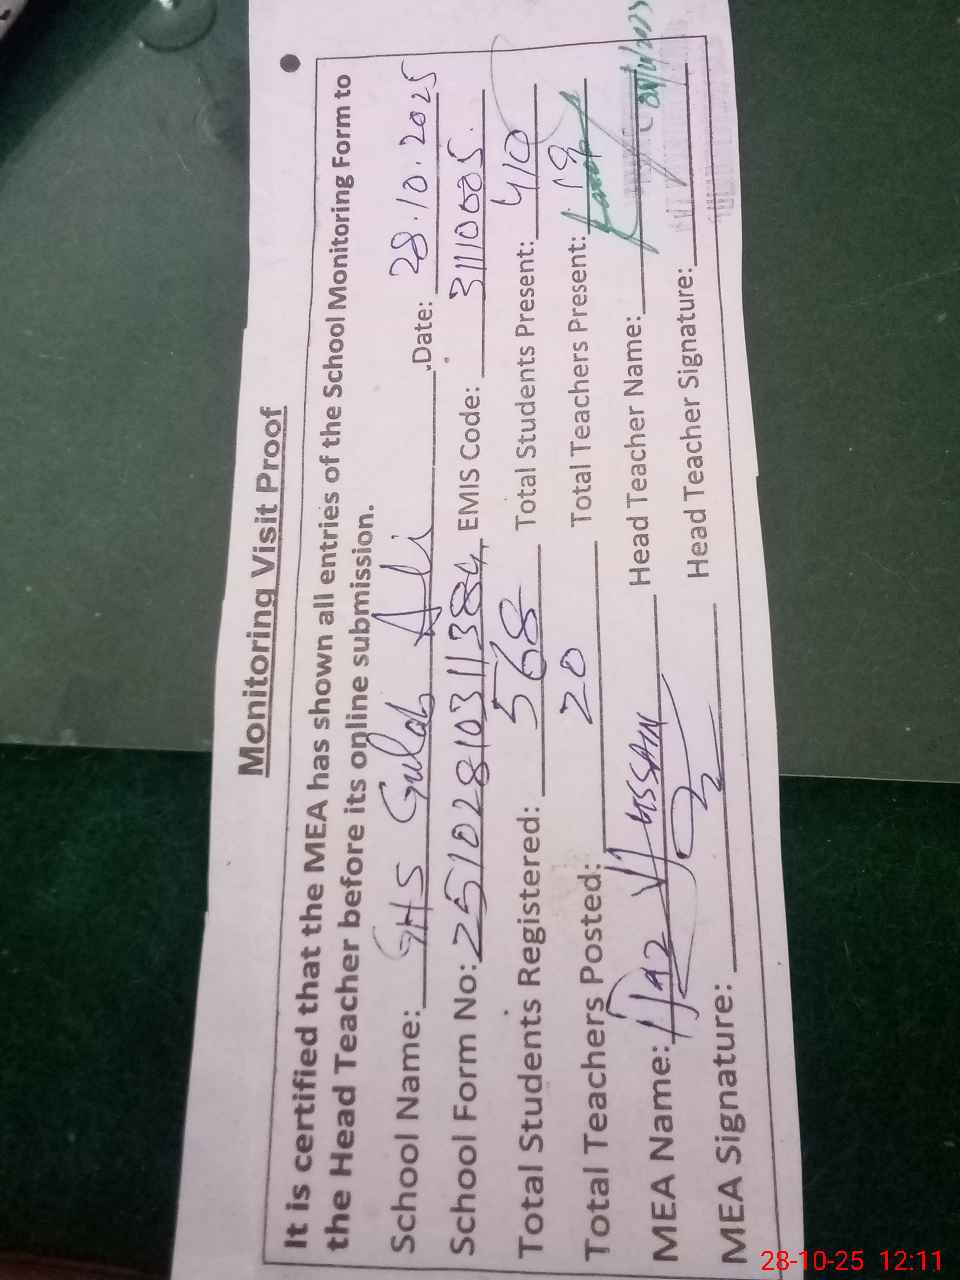 Monitoring Visit Proof
It is certified that the MEA has shown all entries of the School Monitoring Form to
the Head Teacher before its online submission.
School Name: GHS Gulab Ali Date: 28.10.2025
School Form No: 25102810311384, EMIS Code: 31110005.
Total Students Registered: 568 Total Students Present: 410
Total Teachers Posted: 20 Total Teachers Present: 19
MEA Name: HUSSAIN Head Teacher Name:
MEA Signature: Head Teacher Signature:
28-10-25 12:11